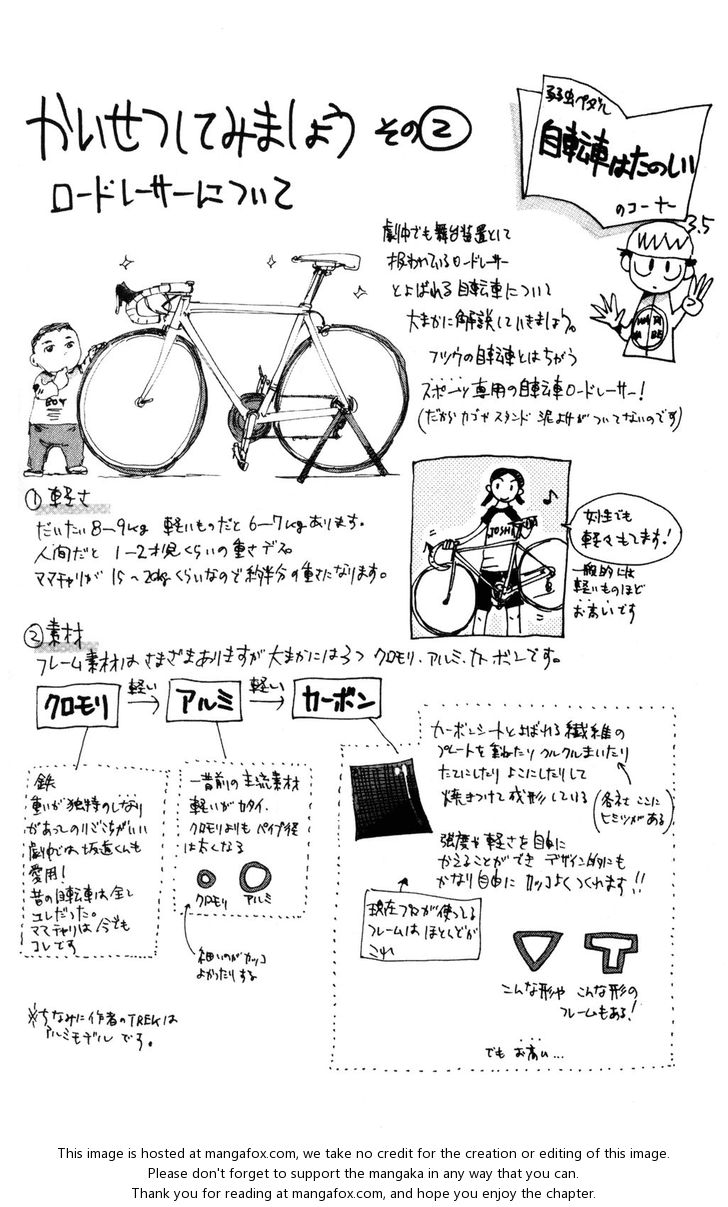 かいせつしてみましょう その②
ロードレーサーについて
弱虫ペダル
自転車はたのしい
のコーナー
3.5
劇中でも舞台装置として
扱われているロードレーサー
とよばれる自転車について
大まかに解説していきましょう。
フツウの自転車とはちがう
スポーツ専用の自転車ロードレーサー!
(だからカゴやスタンド 泥よけがついてないのです)
BOY
①軽さ
だいたい8〜9kg 軽いものだと6〜7kgあります。
人間だと 1〜2才児くらいの重さデス。
ママチャリが 15〜20kgくらいなので約半分の重さになります。
JOSHI
女性でも
軽々もてます!
一般的には
軽いものほど
お高いです
②素材
フレーム素材はさまざまありますが大まかには3つ クロモリ、アルミ、カーボンです。
クロモリ 軽い→ アルミ 軽い→ カーボン
鉄
重いが独特のしなり
があってのりごこちがいい
劇中では坂道くんも
愛用!
昔の自転車は全て
コレだった。
ママチャリは今でも
コレです
一昔前の主流素材
軽いがカタイ.
クロモリよりもパイプ径
は太くなる
クロモリ アルミ
細いのがカッコ
よかったりする
カーボンシートとよばれる繊維の
プレートを重ねたり クルクルまいたり
たてにしたり よこにしたりして
焼きつけて成形している
(各社ここに
ヒミツがある)
強度や軽さを自由に
かえることができ デザイン的にも
かなり自由に カッコよくつくれます!!
現在プロが使ってる
フレームは ほとんどが
これ
こんな形や こんな形の
フレームもある!
でも お高い...
※ちなみに作者のTREKは
アルミモデル です。
This image is hosted at mangafox.com, we take no credit for the creation or editing of this image.
Please don't forget to support the mangaka in any way that you can.
Thank you for reading at mangafox.com, and hope you enjoy the chapter.